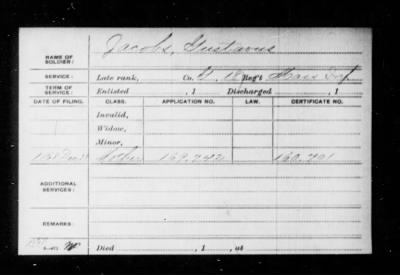 Jacobs, Gustavus
NAME OF SOLDIER:
SERVICE: Late rank, Co. G, 18 Reg't Mass Inf
TERM OF SERVICE: Enlisted , 1 Discharged , 1
DATE OF FILING. CLASS. APPLICATION NO. LAW. CERTIFICATE NO.
Invalid,
Widow,
Minor,
Mother 159,242
ADDITIONAL SERVICES:
REMARKS:
Died , 1 , at